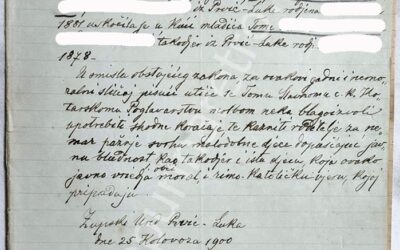 iz Prvić-Luke rodjena
1881 uskočila je u kući mladića Tome
takodjer iz Prvić-Luke rodj.
1878.
U smislu obstojećeg zakona, za ovakovi jadni i nemo-
ralni slučaj pisac utiče se Tomu Slavnomu c. K. Ko-
tarskomu Poglavarstvu molbom neka blagoizvoli
upotrebiti shodne korake, te kazniti roditelje za ne-
mar pažnje svrhu malodobne djece dopuštajuć jav-
nu bludnost kao takodjer i istu djecu, koja ovako
javno vriedja obći moral, i rimo-katoličku vjeru, kojoj
pripadaju.
Župski Ured Prvić-Luka
dne 25 Kolovoza 1900